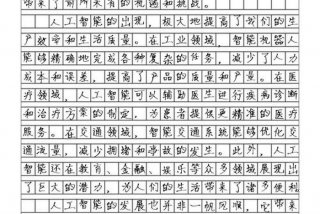 带来了前所未有的机遇和挑战。
人工智能的出现，极大地提高了我们的生
产效率和生活质量。在工业领域，智能机器人
能够精确地完成各种复杂的任务，减少了人力
成本和误差，提高了产品的质量和产量。在医
疗领域，人工智能可以辅助医生进行疾病诊断
和治疗方案的制定，为患者提供更精准的医疗
服务。在交通领域，智能交通系统能够优化交
通流量，减少拥堵和事故的发生。此外，人工
智能还在教育、金融、娱乐等众多领域展现出
了巨大的潜力，为人们的生活带来了诸多便利
人工智能的发展也并非一帆风顺，它带